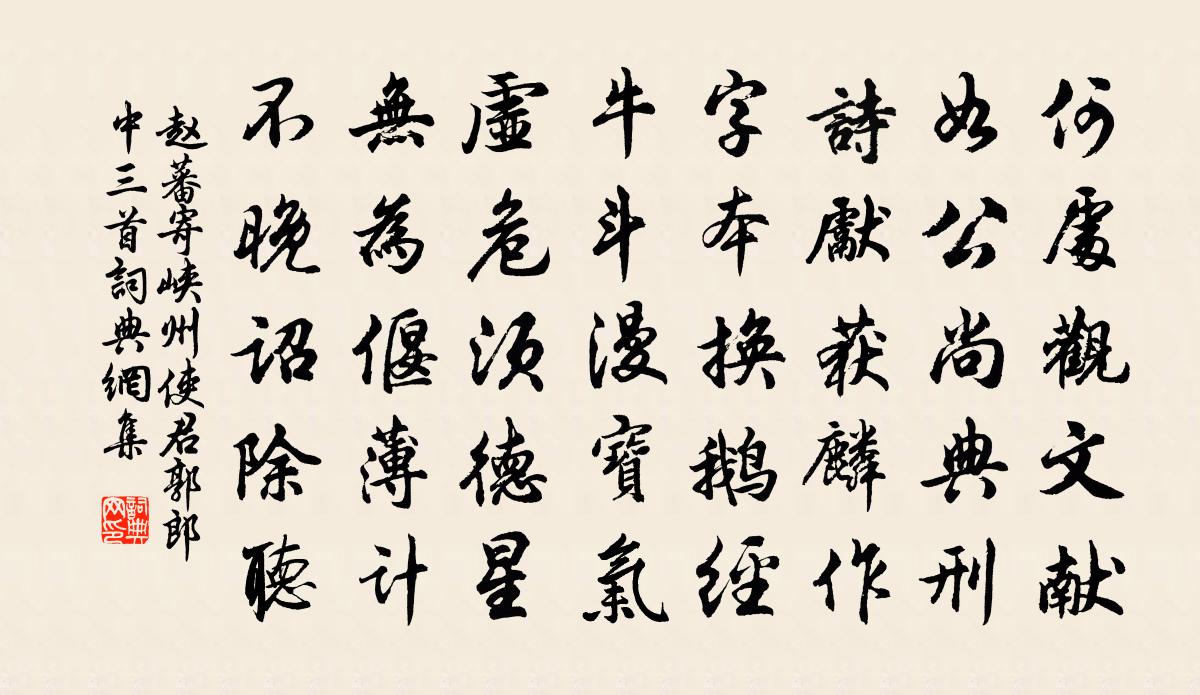 何處觀文献
如公尚典刑
詩獻获麟作
字本换鹅經
牛斗漫寶氣
虛危須德星
無為偃薄计
不晚诏除聽
赵蕃寄峡州使君郭郎
中三首詞典網集
詞典
网印